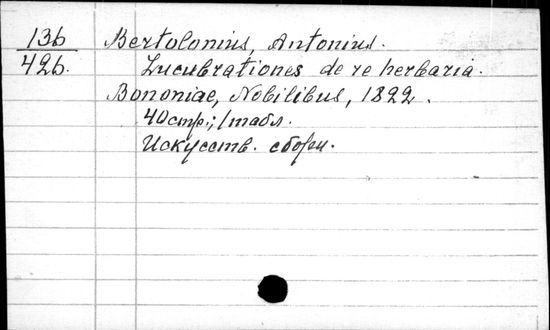 136 Bertolonius, Antonius.
426. Lucubrationes de re herbaria.
Bononiae, Nobilibus, 1822.
40стр.; 1табл.
Искусств. сборн.